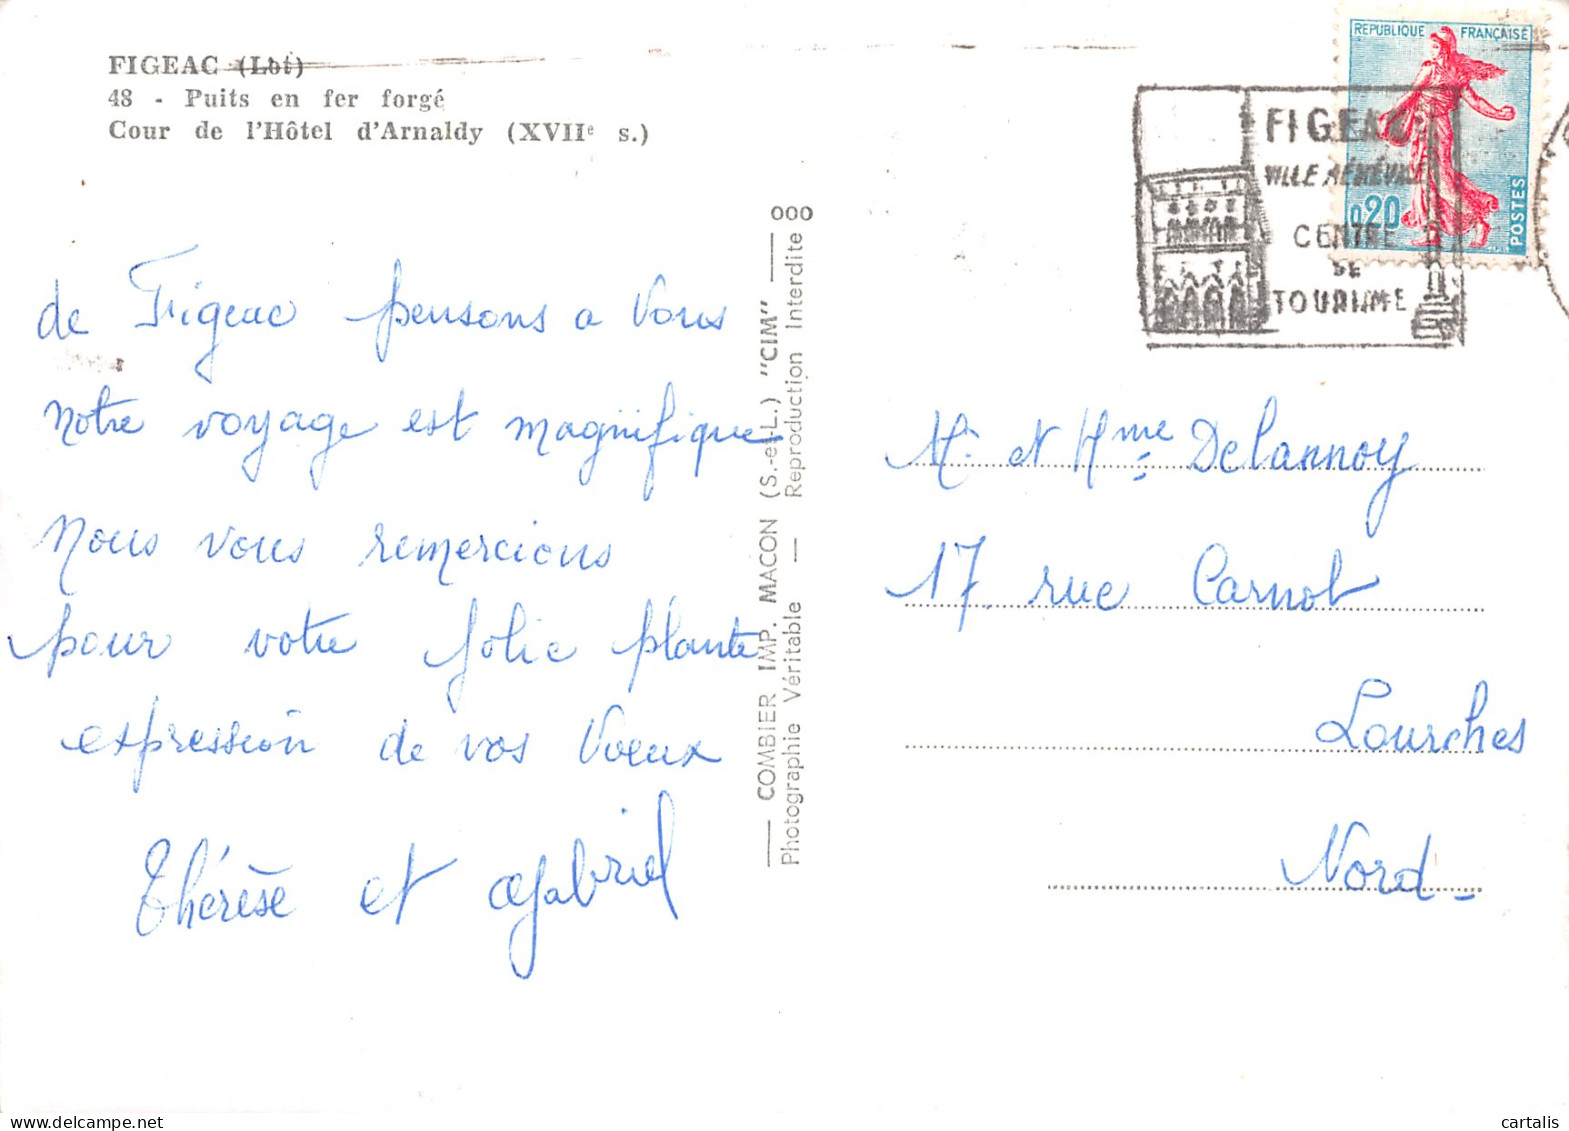 FIGEAC (Lot)
48 - Puits en fer forgé
Cour de l'Hôtel d'Arnaldy (XVIIe s.)
de Figeac pensons a Vous
Notre voyage est magnifique
Nous vous remercions
pour votre jolie plante
expression de vos Voeux
Thérèse et Gabriel
000
COMBIER IMP. MACON (S.-et-L.) "CIM"
Photographie Véritable — Reproduction Interdite
REPUBLIQUE FRANÇAISE
0,20
POSTES
FIGEAC
VILLE MÉDIÉVALE
CENTRE
DE
TOURISME
Mr et Mme Delannoy
17, rue Carnot
Lourches
Nord
cartalis